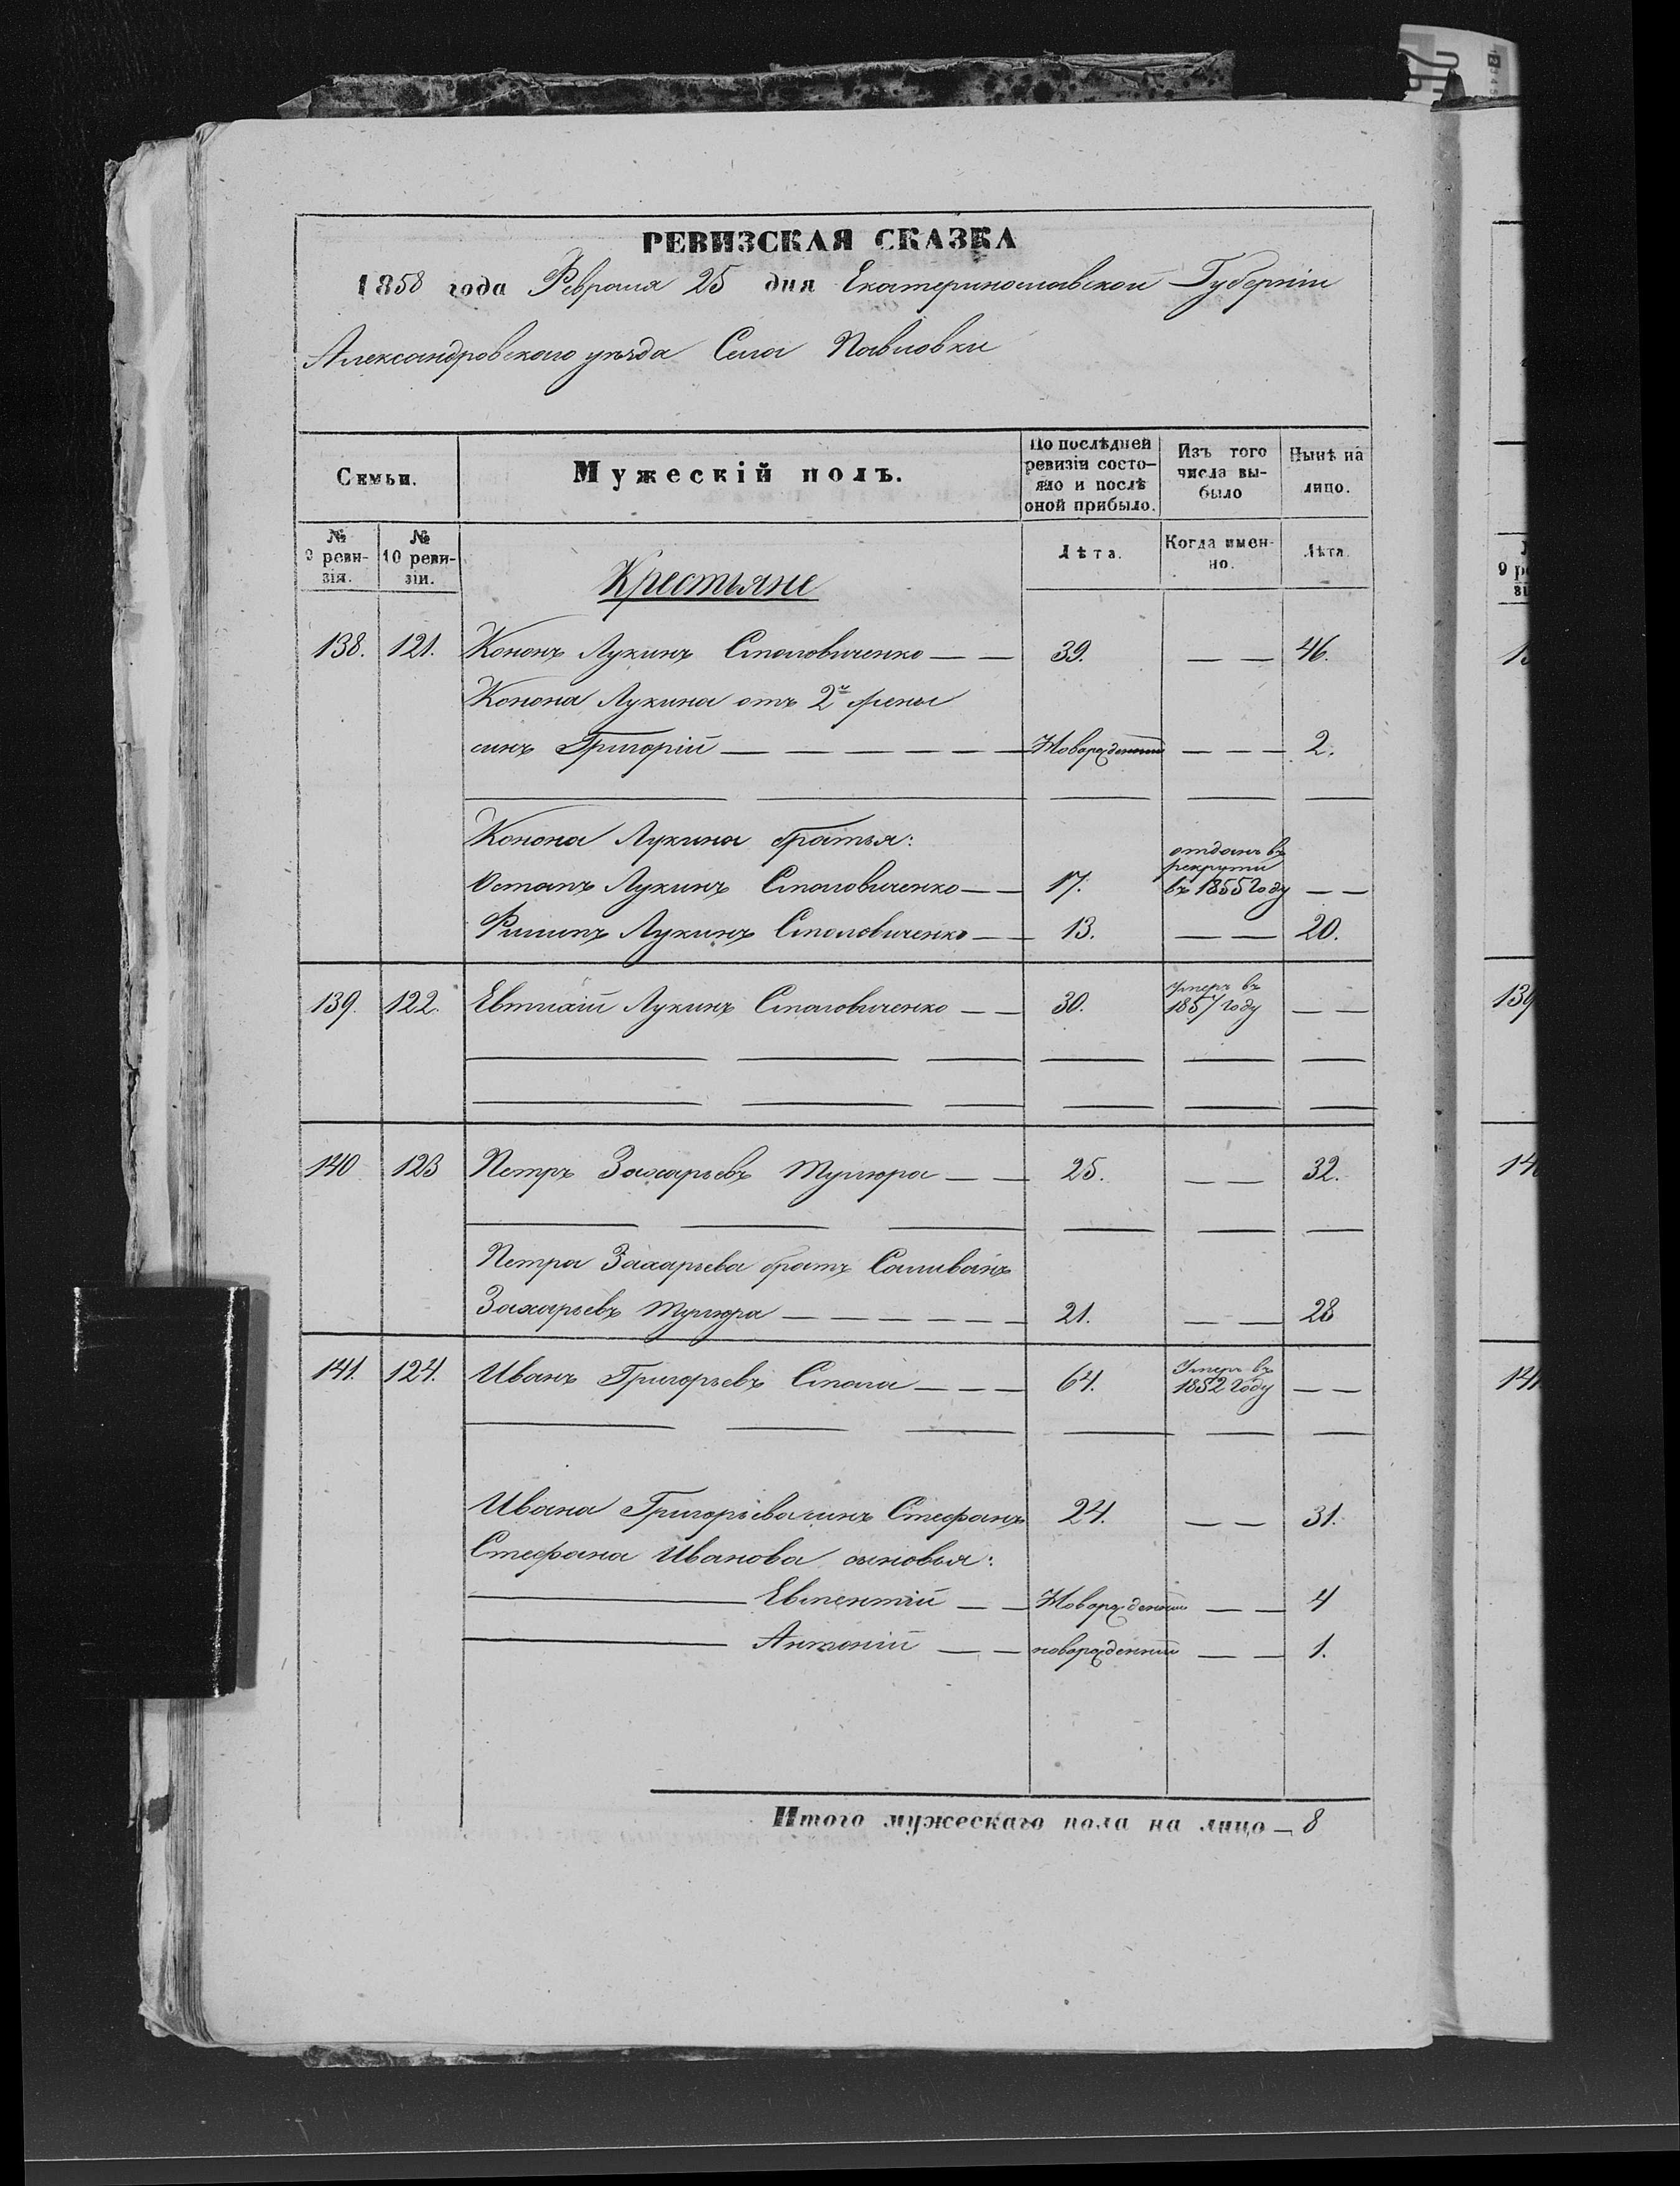 РЕВИЗСКАЯ СКАЗКА
1858 года Февраля 25 дня Екатеринославской Губерніи
Александровскаго уѣзда Села Павловки
Семьи.
Мужескій полъ.
По послѣдней ревизіи состояло и послѣ оной прибыло.
Изъ того числа выбыло
Нынѣ на лицо.
№ 9 ревизія.
№ 10 ревизіи.
Крестьяне
Лѣта.
Когда именно.
Лѣта.
138. 121. Кононъ Лукинъ Столовиченко — — 39. — — 46.
Конона Лукина отъ 2й жены
синъ Григорій — — — — — — Новорожденный — — — 2.
Конона Лукина братья:
Остапъ Лукинъ Столовиченко — — 17. отданъ въ рекруты въ 1855 году — —
Филипъ Лукинъ Столовиченко — — 13. — — 20.
139. 122. Евтихій Лукинъ Столовиченко — — 30. Умеръ въ 1857 году — —
140 123 Петръ Захарьевъ — — 25. — — 32.
Петра Захарьева братъ Саливанъ
Захарьевъ — — — — — — 21. — — 28
141. 124. Иванъ Григорьевъ Стола — — — 64. Умеръ въ 1852 году — —
Ивана Григорьева синъ Стефанъ 24. — — 31.
Стефана Иванова сыновья:
— Евментій — — Новорожденный — — 4
— Антоній — — новорожденный — — 1.
Итого мужескаго пола на лицо — 8
139